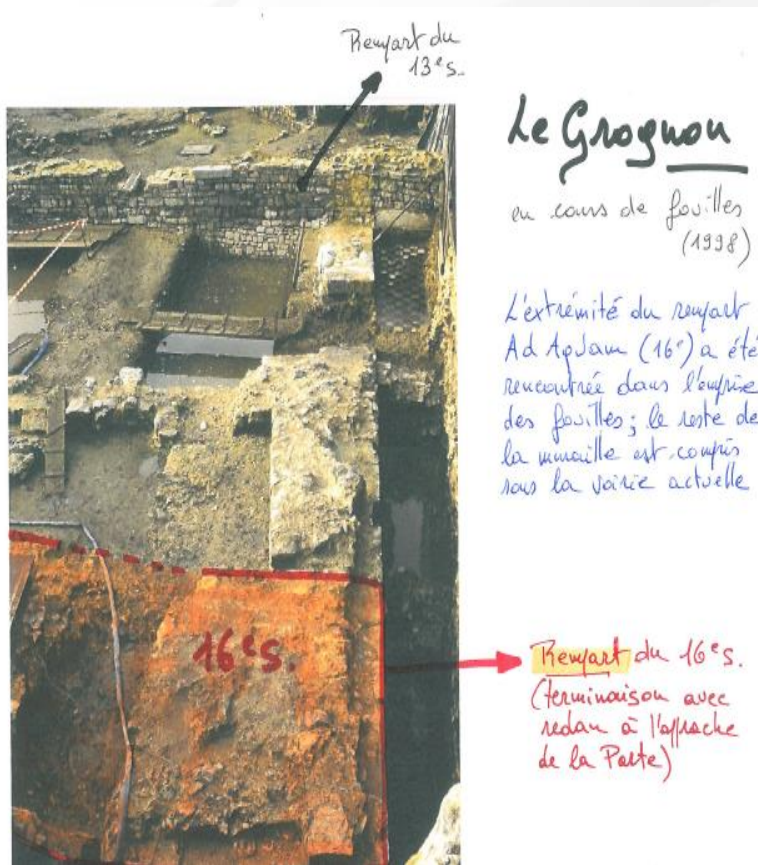 Rempart du
13e s.
Le Grognon
en cours de fouilles
(1998)
L'extrémité du rempart
Ad Aquam (16e) a été
rencontrée dans l'emprise
des fouilles ; le reste de
la muraille est compris
sous la voirie actuelle
16e s.
Rempart du 16e s.
(terminaison avec
redan à l'approche
de la Porte)